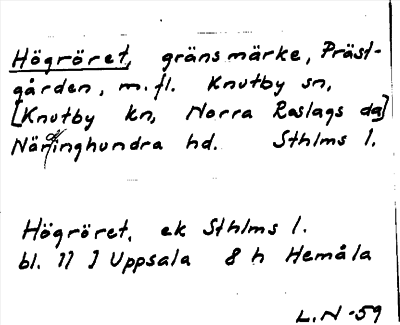 Högröret, gränsmärke, Präst-
gården, m.fl. Knutby sn,
[Knutby kn, Norra Roslags da]
Närdinghundra hd. Sthlms l.
Högröret, ek Sthlms l.
bl. 11 J Uppsala 8 h Hemåla
L.N -59